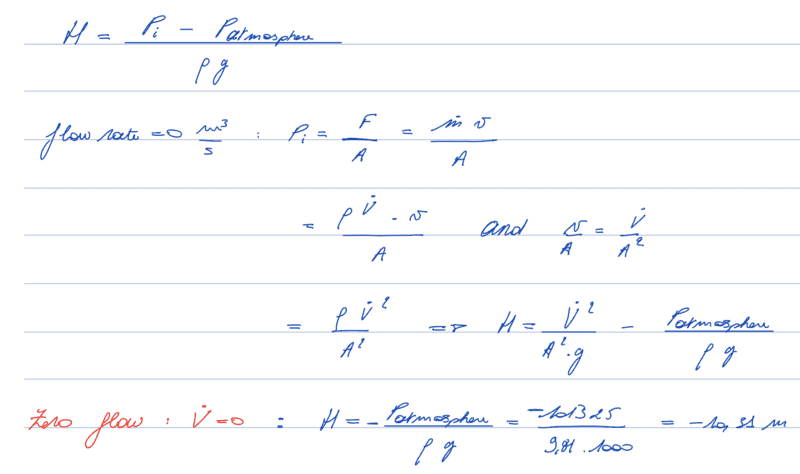 H = (Pi − Patmosphere) / ρ g
flow rate = 0 m³/s : Pi = F/A = ṁ v / A
= ρ V̇ · v / A and v/A = V̇/A²
= ρ V̇² / A² => H = V̇² / A² · g − Patmosphere / ρ g
Zero flow : V̇ = 0 : H = − Patmosphere / ρ g = −101325 / 9,81 . 1000 = −10,33 m